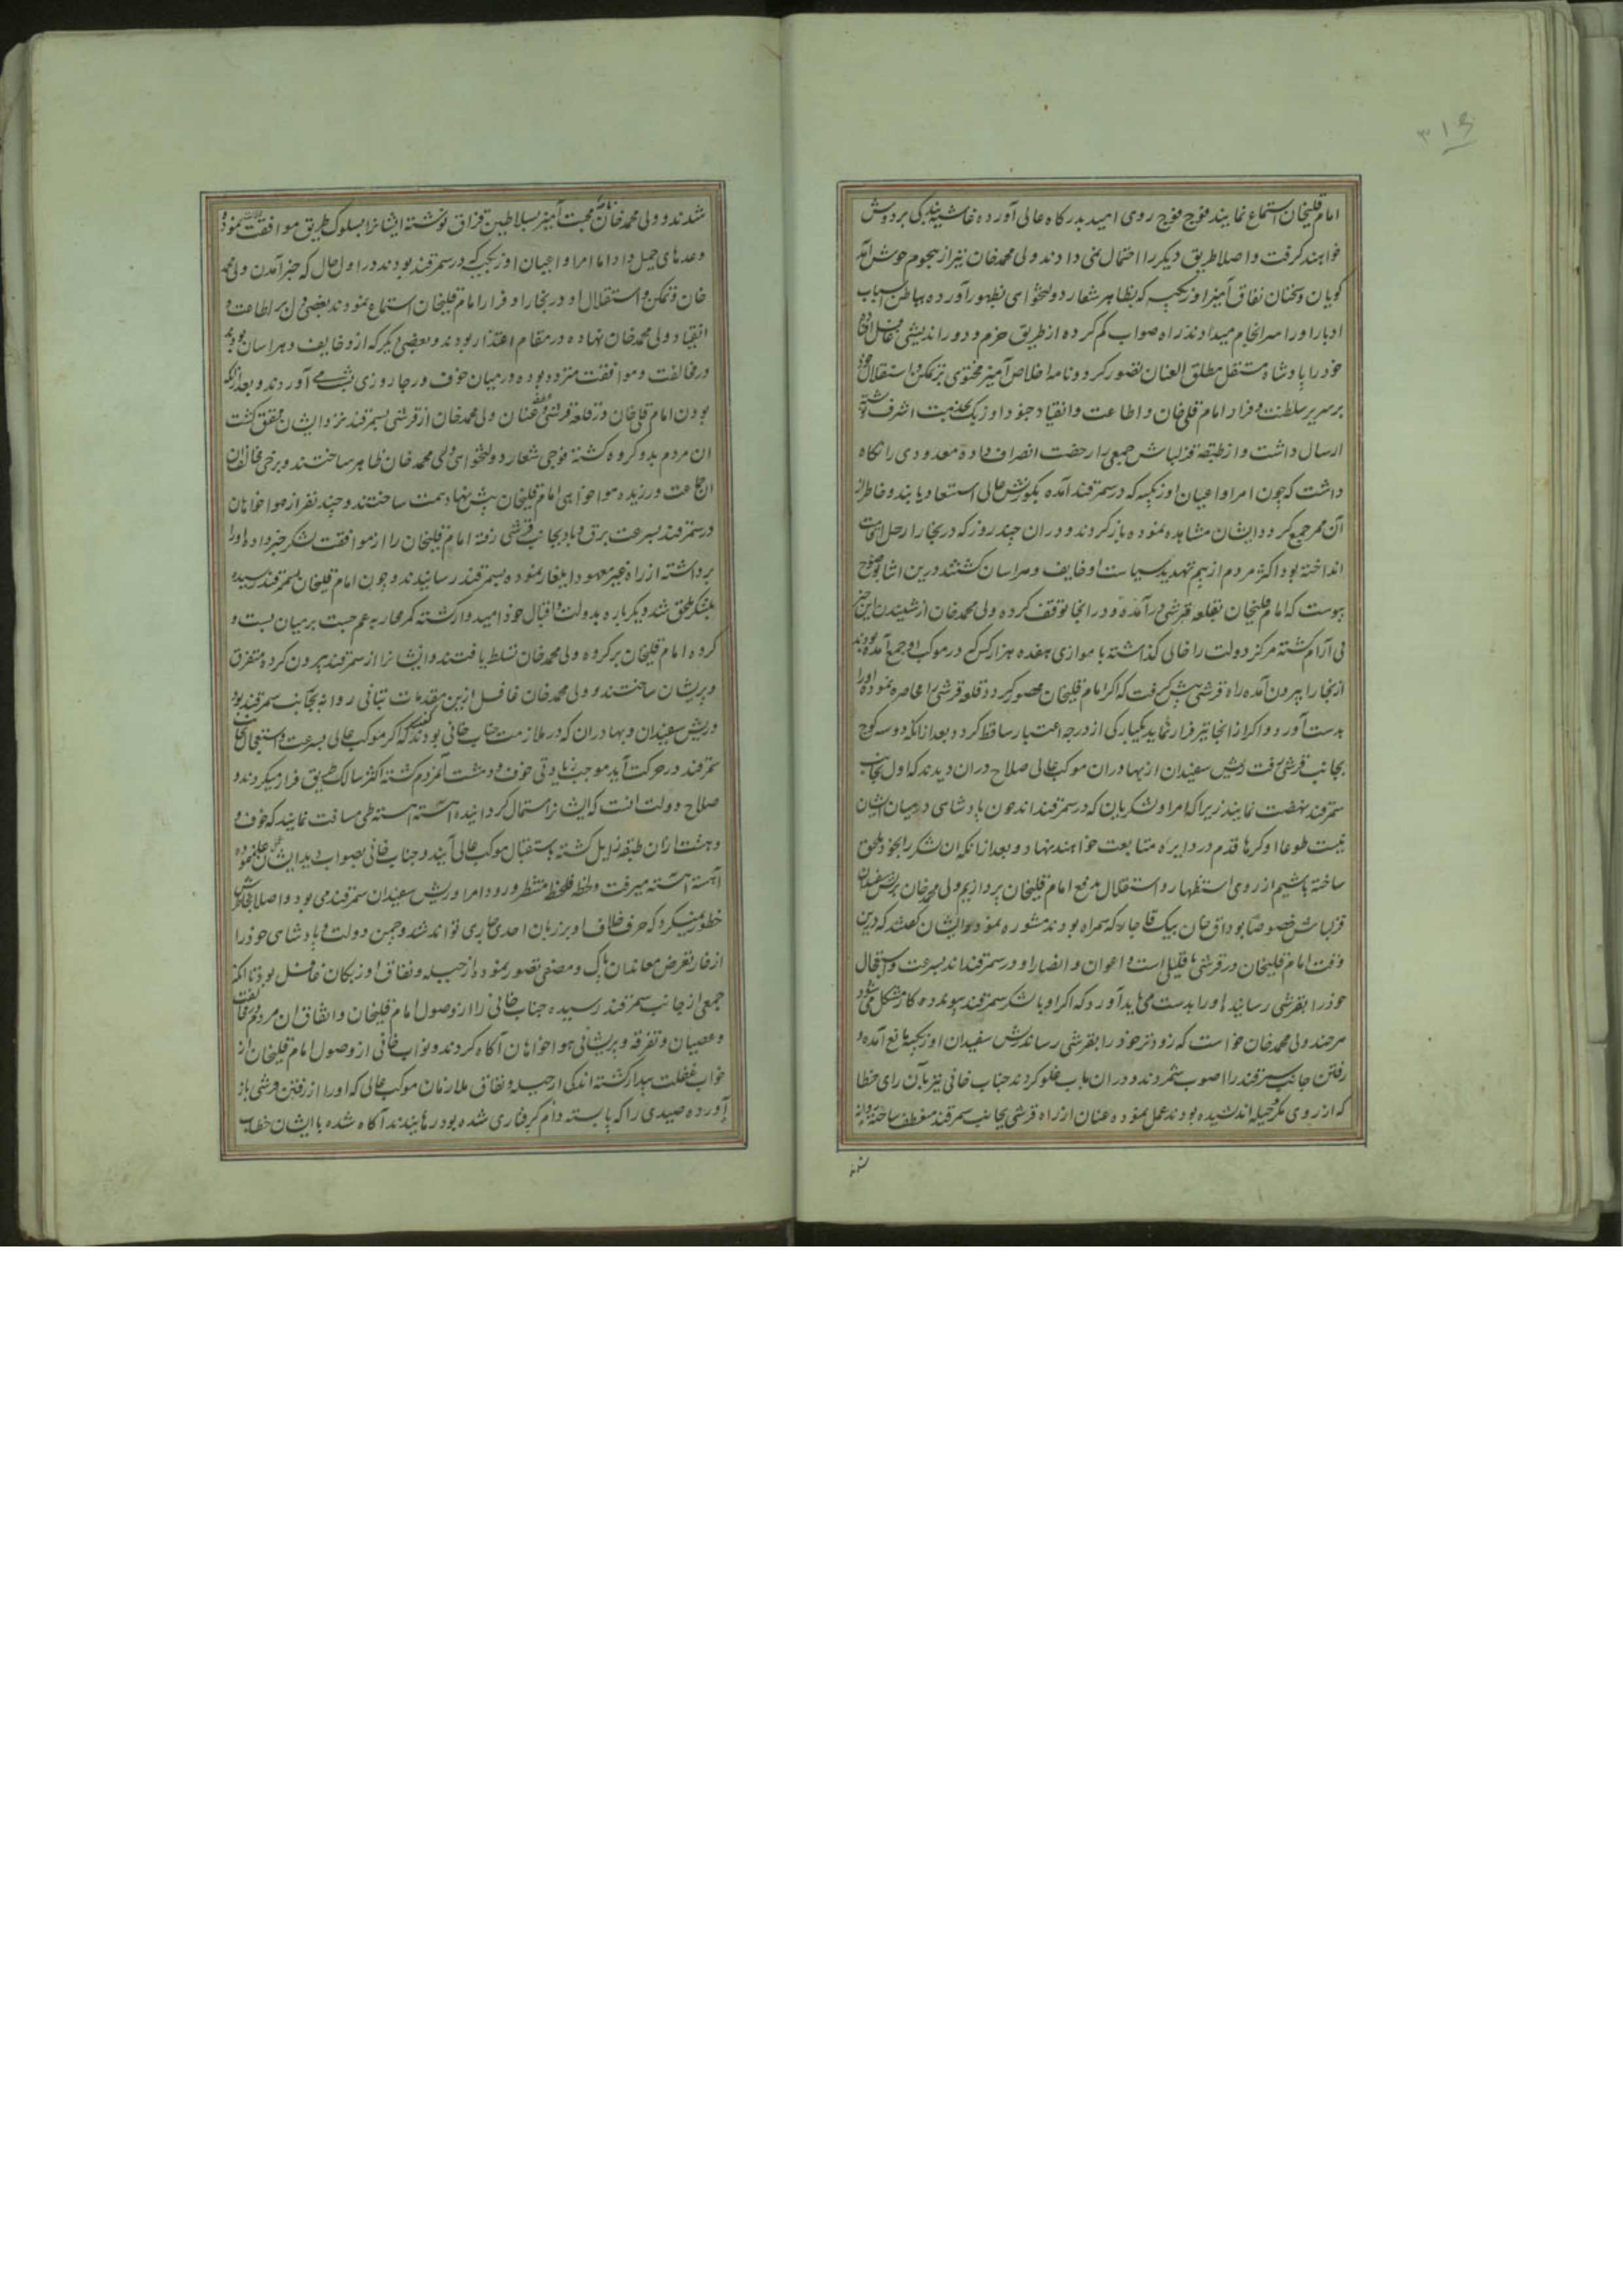 ۳۱۶
امام قلیخان استماع نمایند فوج فوج روی امید بدرکاه عالی آورده غاشیه بندکی بر دوش
خواهند کرفت و اصلا طریق دیکر را احتمال نمی دادند ولی محمد خان نیز از هجوم خوش آمد
کویان و سخنان نفاق آمیز اوزبکیه که بظاهر شعار دولتخواهی بظهور آورده بباطن اسباب
ادبار او را سرانجام میدادند راه صواب کم کرده از طریق حزم و دوراندیشی غافل افتاده
خود را پادشاه مستقل مطلق العنان تصور کرد و نامه اخلاص آمیز محتوی بر تمکن و استقلال خود
بر سریر سلطنت و فرار امام قلی خان و اطاعت و انقیاد جنود اوزبک بخدمت اشرف نوشته
ارسال داشت و از طبقه قزلباش جمعی را رخصت انصراف داده معدودی را نکاه
داشت که چون امرا و اعیان اوزبکیه که در سمرقند آمده بکورنش عالی استسعاد یابند و خاطر از
آن ممر جمع کردد ایشان مشاهده نموده باز کردند و در ان چند روز که در بخارا رحل اقامت
انداخته بود اکثر مردم از بیم تهدید سیاست او خایف و هراسان کشتند درین اثنا بوضوح
پیوست که امام قلیخان بقلعه قرشی در آمده و در انجا توقف کرده ولی محمد خان از شنیدن این خبر
بی آرام کشته مرکز دولت را خالی کذاشته با موازی هفده هزار کس که در موکب او جمع آمده بودند
از بخارا بیرون آمده راه قرشی پیش کرفت که اکر امام قلیخان محصور کردد قلعه قرشی را محاصره نموده او را
بدست آورد و اکر از انجا نیز فرار نماید یکبارکی از درجه اعتبار ساقط کردد بعد از انکه دو سه کوچ
بجانب قرشی رفت ریش سفیدان از بهادران موکب عالی صلاح در ان دیدند که اول بجانب
سمرقند نهضت نمایند زیرا که امرا و لشکریان که در سمرقند اند چون پادشاهی در میان ایشان
نیست طوعا او کرها قدم در دایره متابعت خواهند نهاد و بعد از انکه ان لشکر را بخود ملحق
ساخته باشیم از روی استظهار و استقلال بدفع امام قلیخان پردازیم ولی محمد خان با ریش سفیدان
قزلباش خصوصا بوداق خان بیک قاجار که همراه بودند مشوره نمود ایشان کفتند که درین
وقت امام قلیخان در قرشی با قلیلی است و اعوان و انصار او در سمرقند اند بسرعت و استعجال
خود را بقرشی رسانیده او را بدست می باید آورد که اکر او با لشکر سمرقند پیوندد کار مشکل می شود
هر چند ولی محمد خان خواست که زودتر خود را بقرشی رساند ریش سفیدان اوزبکیه مانع آمده
رفتن جانب سمرقند را اصوب شمردند و در ان باب غلو کردند جناب خانی نیز بآن رای خطا
که از روی مکر و حیله اندیشیده بودند عمل نموده عنان از راه قرشی بجانب سمرقند منعطف ساخته روانه
شد
شدند و ولی محمد خان نامه محبت آمیز بسلاطین قزاق نوشته ایشانرا بسلوک طریق موافقت نمود
وعدهای جمیل داد اما امرا و اعیان اوزبکیه که در سمرقند بودند در اول حال که خبر آمدن ولی محمد
خان و تمکن و استقلال او در بخارا و فرار امام قلیخان استماع نمودند بعضی دل بر اطاعت و
انقیاد ولی محمد خان نهاده در مقام اعتذار بودند و بعضی دیکر که ازو خایف و هراسان بودند
در مخالفت و موافقت متردد بوده در میان خوف و رجا روزی بشب می آوردند و بعد از انکه
بودن امام قلی خان در قلعه قرشی و عطف عنان ولی محمد خان از قرشی بسمرقند نزد ایشان محقق کشت
ان مردم بدو کروه کشته فوجی شعار دولتخواهی ولی محمد خان ظاهر ساختند و برخی مخالف ان
جماعت ورزیده هواخواهی امام قلیخان پیش نهاد همت ساختند و چند نفر از هواخواهان
در سمرقند بسرعت برق و باد بجانب قرشی رفته امام قلیخان را از موافقت لشکر خبر داده او را
برداشته از راه غیر معهود ایلغار نموده بسمرقند رسانیدند و چون امام قلیخان بسمرقند رسیده
بلشکر ملحق شد دیکرباره بدولت و اقبال خود امیدوار کشته کمر محاربه عم چست بر میان بست و
کروه امام قلیخان بر کروه ولی محمد خان تسلط یافتند و ایشانرا از سمرقند بیرون کرده متفرق
و پریشان ساختند و ولی محمد خان غافل ازین مقدمات بتانی روانه بجانب سمرقند بود
و ریش سفیدان و بهادران که در ملازمت جناب خانی بودند کفتند که اکر موکب عالی بسرعت و استعجال بجانب
سمرقند در حرکت آید موجب زیادتی خوف و دهشت آن مردم کشته اکثر سالک طریق فرار میکردند و
صلاح دولت انست که ایشانرا استمال کردانیده آهسته آهسته طی مسافت نمایند که خوف و
دهشت از ان طبقه زایل کشته باستقبال موکب عالی آیند و جناب خانی بصواب دید ایشان عمل نموده
آهسته آهسته میرفت و لحظه فلحظه منتظر ورود امرا و ریش سفیدان سمرقند می بود و اصلا بخاطرش
خطور نمیکرد که حرف خلاف او بر زبان احدی جاری تواند شد و چمن دولت و پادشاهی خود را
از خار تعرض معاندان پاک و مصفی تصور نموده از حیله و نفاق اوزبکان غافل بود تا انکه
جمعی از جانب سمرقند رسیده جناب خانی را از وصول امام قلیخان و اتفاق ان مردم بمخالفت
و عصیان و تفرقه و پریشانی هواخواهان آکاه کردند و نواب خانی از وصول امام قلیخان از
خواب غفلت بیدار کشته اندکی از حیله و نفاق ملازمان موکب عالی که او را از رفتن قرشی باز
آورده صیدی را که پابسته دام کرفتاری شده بود رهانیدند آکاه شده با ایشان خطاب